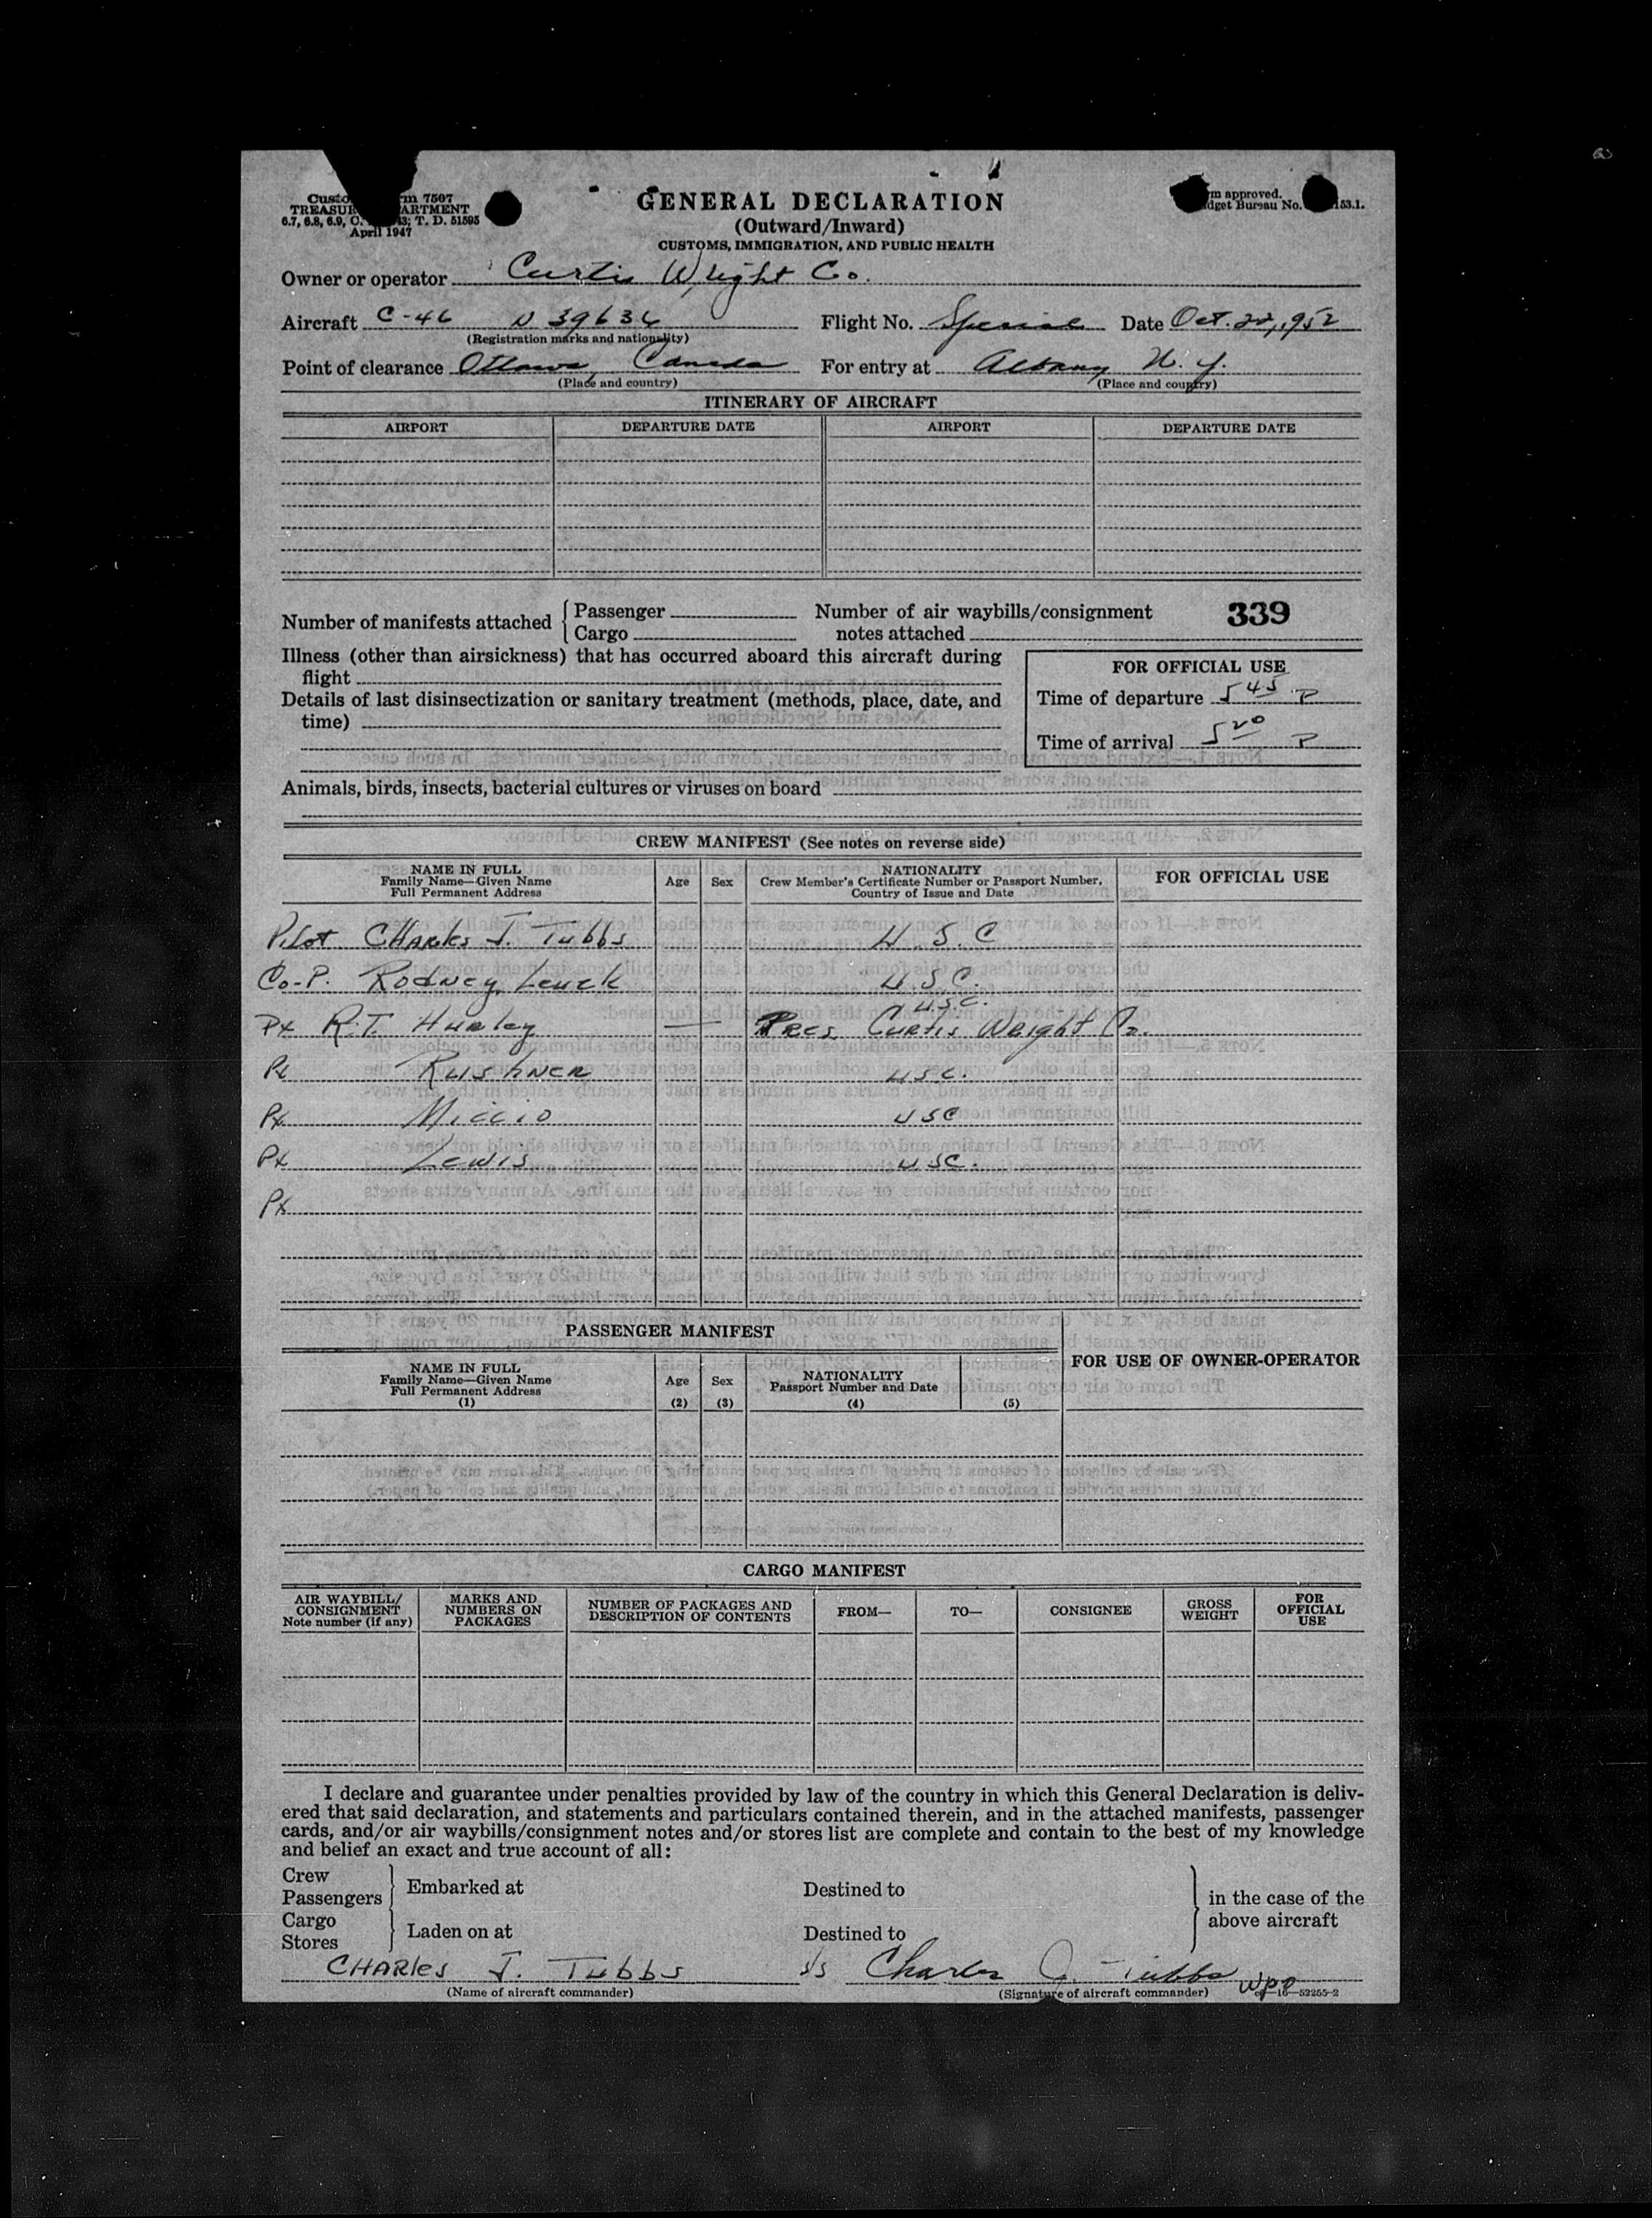 GENERAL DECLARATION
(Outward/Inward)
CUSTOMS, IMMIGRATION, AND PUBLIC HEALTH
7507
TREASUR ARTMENT
6.7, 6.8, 6.9, C. T. D. 51595
April 1947
m approved.
dget Bureau No. 153.1.
Owner or operator Curtis Wright Co.
Aircraft C-46 N 39636 Flight No. Special Date Oct. 22, 1952
(Registration marks and nationality)
Point of clearance Ottawa, Canada For entry at Albany N.Y.
(Place and country) (Place and country)
ITINERARY OF AIRCRAFT
AIRPORT DEPARTURE DATE AIRPORT DEPARTURE DATE
Number of manifests attached Passenger Number of air waybills/consignment 339
Cargo notes attached
Illness (other than airsickness) that has occurred aboard this aircraft during
flight
FOR OFFICIAL USE
Details of last disinsectization or sanitary treatment (methods, place, date, and
time)
Time of departure 5 45 P
Time of arrival 5 20 P
Animals, birds, insects, bacterial cultures or viruses on board
CREW MANIFEST (See notes on reverse side)
NAME IN FULL
Family Name—Given Name
Full Permanent Address
Age Sex
NATIONALITY
Crew Member's Certificate Number or Passport Number,
Country of Issue and Date
FOR OFFICIAL USE
Pilot CHARles J. Tubbs U.S.C
Co-P. Rodney Leuck U.S.C.
U.S.C.
Px R.T. Hurley — Pres Curtis Wright Co.
Px Rushner USC.
Px Miccio USC
Px Lewis USC.
Px
PASSENGER MANIFEST
FOR USE OF OWNER-OPERATOR
NAME IN FULL
Family Name—Given Name
Full Permanent Address
(1)
Age
(2)
Sex
(3)
NATIONALITY
Passport Number and Date
(4) (5)
CARGO MANIFEST
AIR WAYBILL/
CONSIGNMENT
Note number (if any)
MARKS AND
NUMBERS ON
PACKAGES
NUMBER OF PACKAGES AND
DESCRIPTION OF CONTENTS
FROM—
TO—
CONSIGNEE
GROSS
WEIGHT
FOR
OFFICIAL
USE
I declare and guarantee under penalties provided by law of the country in which this General Declaration is deliv-
ered that said declaration, and statements and particulars contained therein, and in the attached manifests, passenger
cards, and/or air waybills/consignment notes and/or stores list are complete and contain to the best of my knowledge
and belief an exact and true account of all:
Crew
Passengers Embarked at Destined to in the case of the
Cargo above aircraft
Stores Laden on at Destined to
CHARles J. Tubbs Charles J. Tubbs
(Name of aircraft commander) (Signature of aircraft commander)
16—52255-2